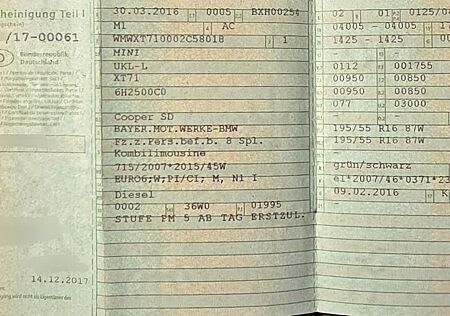 heinigung Teil I
/17-00061
Bundesrepublik
Deutschland
14.12.2017
30.03.2016 0005 BXH00254
M1 AC
WMWXT710002C58018
MINI
UKL-L
XT71
6H2500C0
Cooper SD
BAYER.MOT.WERKE-BMW
Fz.z.Pers.bef.b. 8 Spl.
Kombilimousine
715/2007*2015/45W
EURO6;W;PI/CI; M, N1 I
Diesel
0002 36W0 01995
STUFE PM 5 AB TAG ERSTZUL.
02 01 0125/04
04005 - 04005
1425 - 1425
0112 001755
00950 00850
00950 00850
077 03000
195/55 R16 87W
195/55 R16 87W
grün/schwarz
e1*2007/46*0371*23
09.02.2016 K